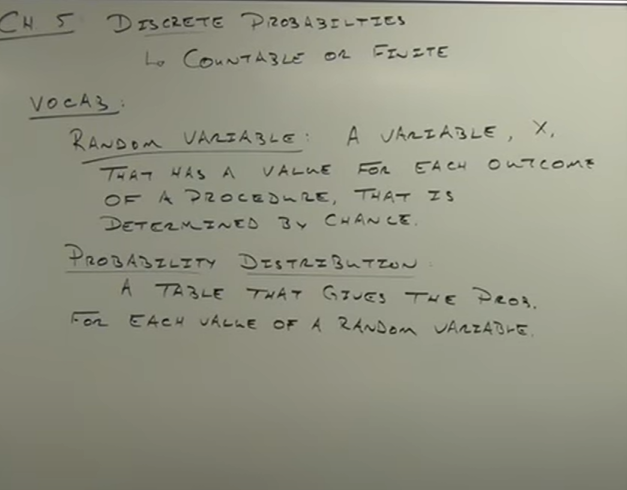 CH 5 DISCRETE PROBABILTIES
↳ COUNTABLE OR FINITE
VOCAB:
RANDOM VARIABLE: A VARIABLE, X,
THAT HAS A VALUE FOR EACH OUTCOME
OF A PROCEDURE, THAT IS
DETERMINED BY CHANCE.
PROBABILITY DISTRIBUTION:
A TABLE THAT GIVES THE PROB.
FOR EACH VALUE OF A RANDOM VARIABLE.